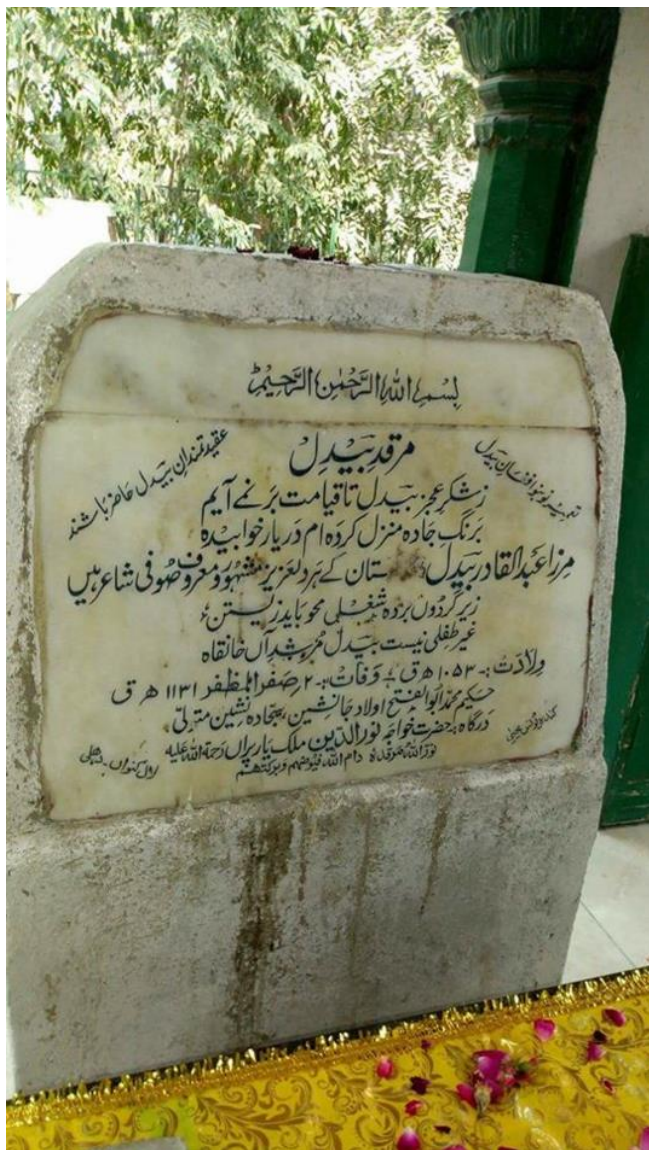 بِسْمِ اللهِ الرَّحْمٰنِ الرَّحِيْمِ
مرقدِ بیدل
عقیدتمندانِ بیدل حاضر باشند
زشکرِ عجز بیدل تا قیامت بر نمے آیم
برنگِ جادہ منزل کردہ ام در یار خوابیدہ
مرزا عبدالقادر بیدل ستان کے ہردلعزیز مشہور و معروف صوفی شاعر ہیں
زیر گردوں بردہ شغلی محو باید زیستن
غیر طفلی نیست بیدل مرشد آں خانقاہ
ولادت:۔ ۱۰۵۳ ھ ق وفات:۔ ۴ صفر المظفر ۱۱۳۱ ھ ق
حکیم محمد ابوالفتح اولاد جانشین سجادہ نشین متولی
درگاہ حضرت خواجہ نورالدین ملک یار پراں رحمۃ اللہ علیہ
نوراللہ مرقدہ دام اللہ فیوضہم وبرکتہم